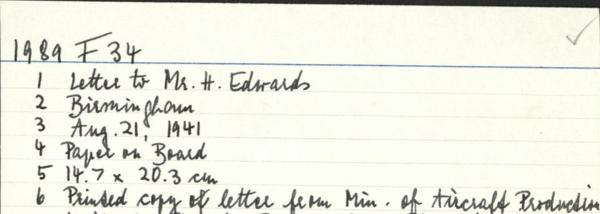 1989 F 34
1 Letter to Mr. H. Edwards
2 Birmingham
3 Aug. 21, 1941
4 Paper on Board
5 14.7 x 20.3 cm
6 Printed copy of letter from Min. of Aircraft Production